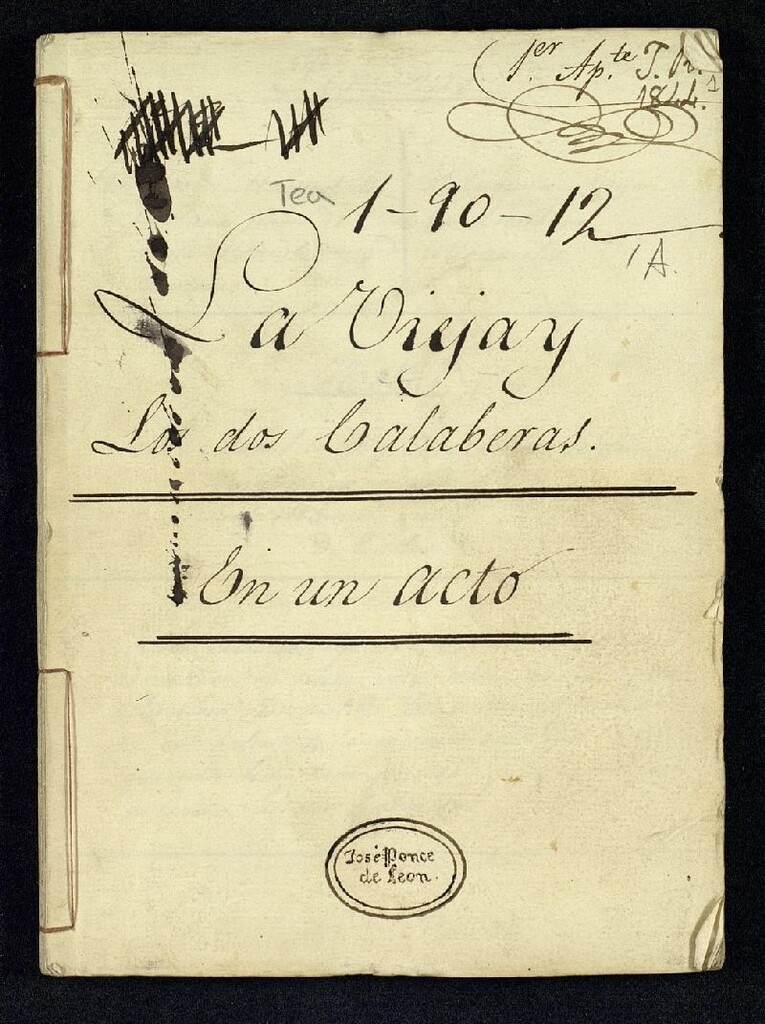 1er Ap.te T. R.
1844.
Tea 1-90-12
1 A.
La Vieja y
Los dos Calaberas.
En un acto
José Ponce
de Leon.